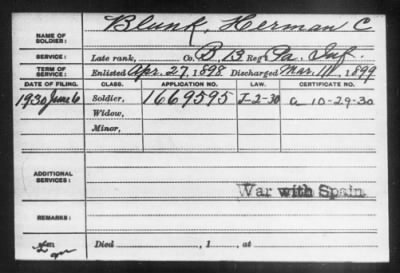 NAME OF SOLDIER: Blunk, Herman C
SERVICE: Late rank, Co. B, 13 Reg't Pa. Inf.
TERM OF SERVICE: Enlisted Apr. 27, 1898, Discharged Mar. 11, 1899
DATE OF FILING. CLASS. APPLICATION NO. LAW. CERTIFICATE NO.
1930 June 6 Soldier, 1669595 I-2-30 10-29-30
Widow,
Minor,
ADDITIONAL SERVICES:
War with Spain
REMARKS:
Died , 1 , at